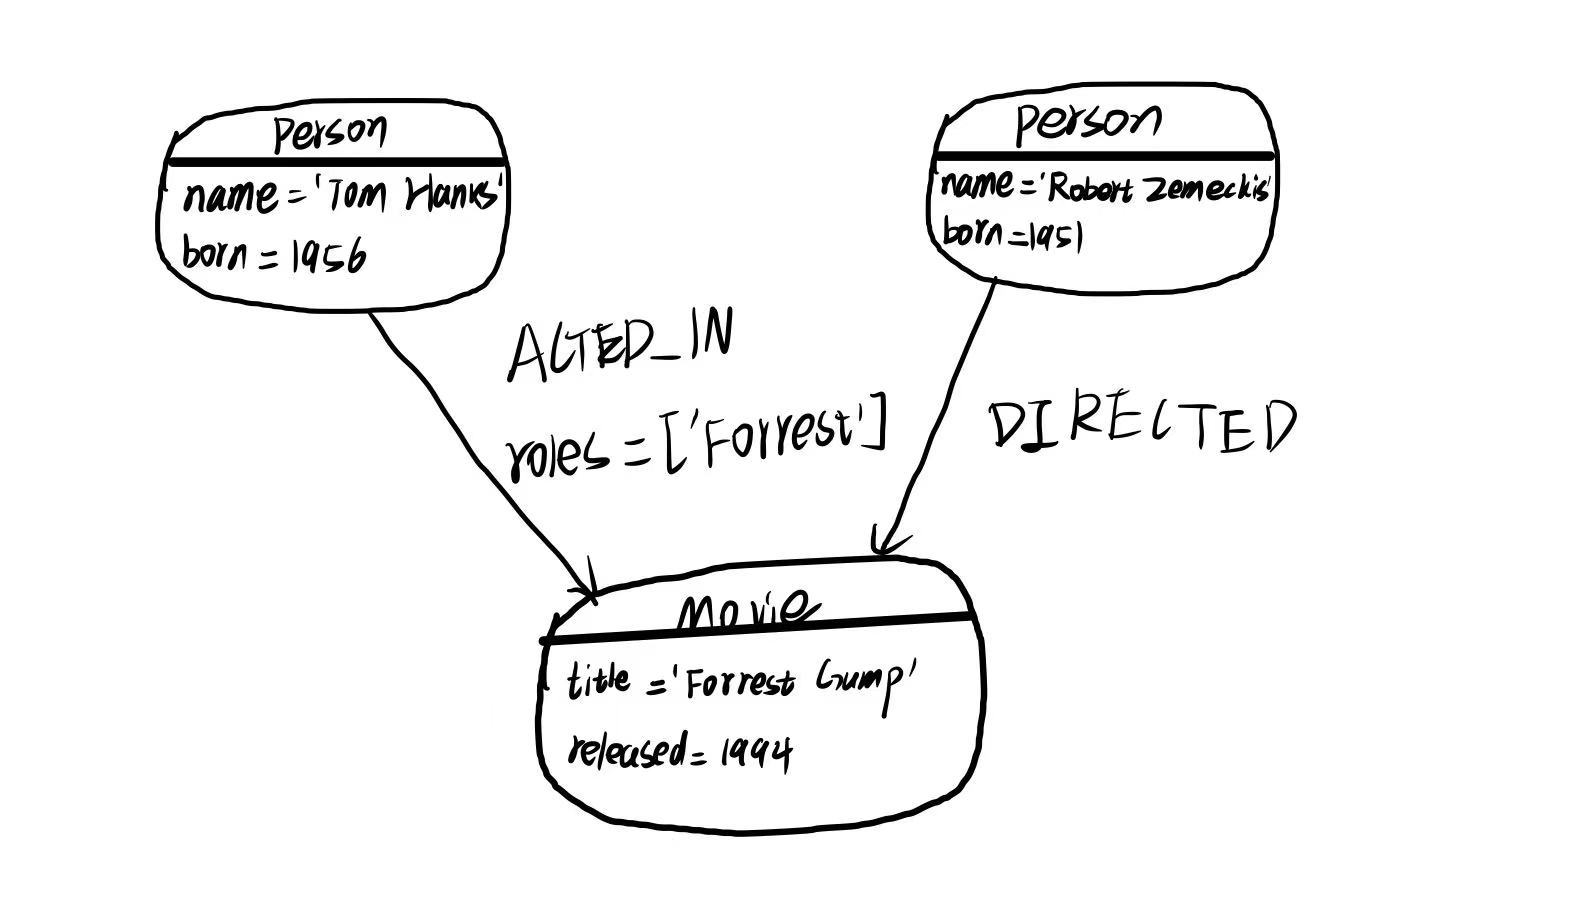 Person
name = 'Tom Hanks'
born = 1956
Person
name = 'Robert Zemeckis'
born = 1951
ACTED_IN
roles = ['Forrest']
DIRECTED
Movie
title = 'Forrest Gump'
released = 1994